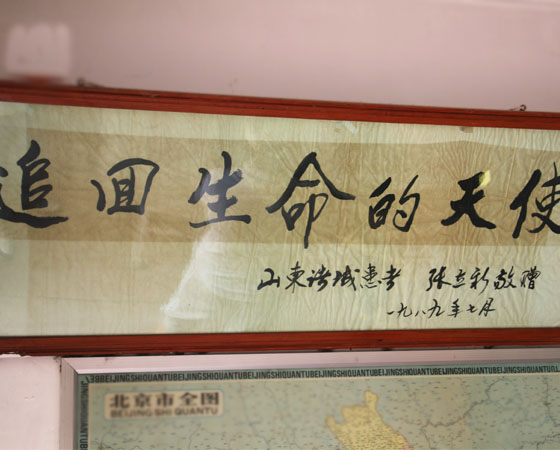 追回生命的天使
山东诸城患者 张立新敬赠
一九八九年七月
BEIJINGSHIQUANTUBEIJINGSHIQUANTUBEIJINGSHIQUANTUBEIJINGSHIQUANTUBEIJINGSHIQUANTU
北京市全图
BEIJING SHI QUANTU